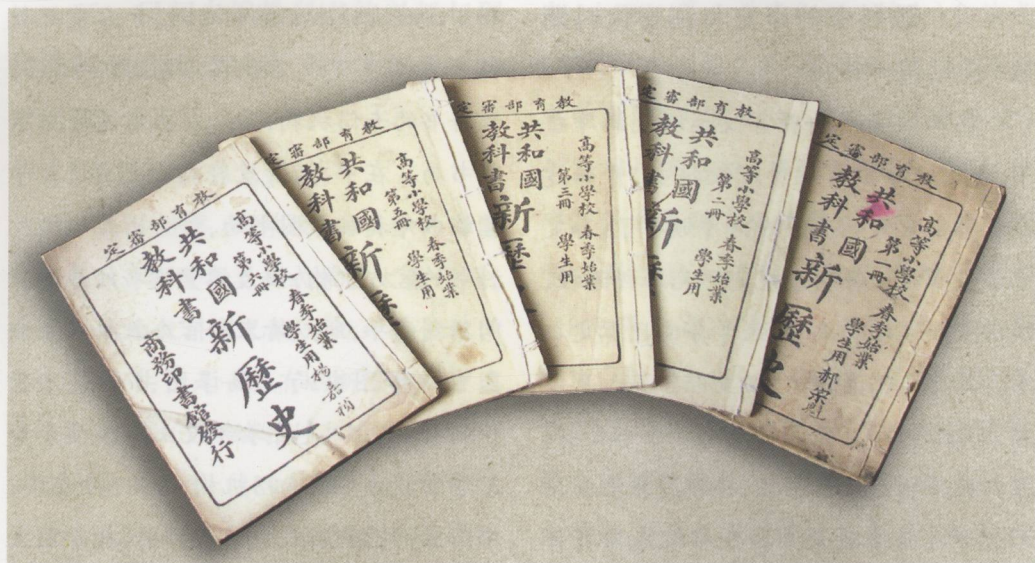 教育部審定
高等小學校 春季始業
第六冊 學生用 楊嘉禎
共和國
教科書
新歷史
商務印書館發行
教育部審定
高等小學校 春季始業
第五冊 學生用
共和國
教科書
新
教育部審定
高等小學校 春季始業
第三冊 學生用
共和國
教科書
新歷
教育部審定
高等小學校 春季始業
第二冊 學生用
共和國
教科書
新歷
教育部審定
高等小學校 春季始業
第一冊 學生用 郝
共和國
教科書
新歷史